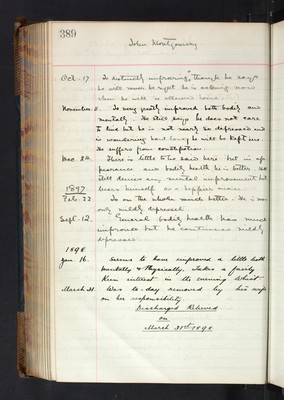 389
John Montgomery
Oct. 17 Is distinctly improving, though he says
he will never be right. He is asking now
when he will be allowed home.
November 11. Is very greatly improved both bodily and
mentally. He still says he does not care
to live but he is not nearly so depressed and
is wondering how long he will be kept here.
He suffers from constipation.
Dec. 24. There is little to be said here but in ap
pearance and bodily health he is better. He
still denies any mental improvement but
1897 bears himself as a happier man.
Feb. 22 Is on the whole much better. He is now
only mildly depressed.
Sept. 12. General bodily health has much
improved but he continues mildly
depressed.
1898
Jan. 16. Seems to have improved a little both
mentally & Physically. Takes a fairly
keen interest in the evening
March 31. Was to-day removed by his wife
on her responsibility
Discharged Relieved
on
March 31st 1898